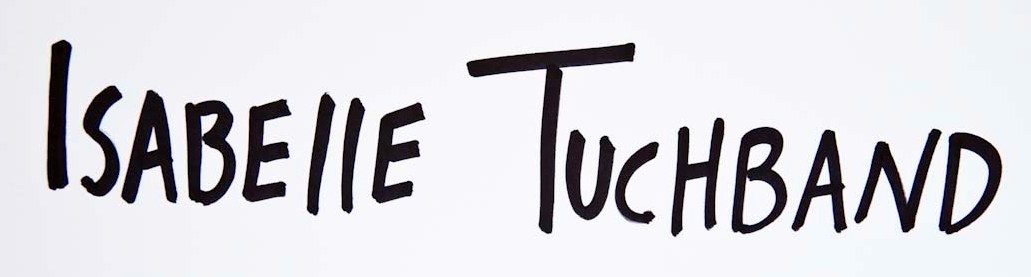 ISABEllE TUCHBAND